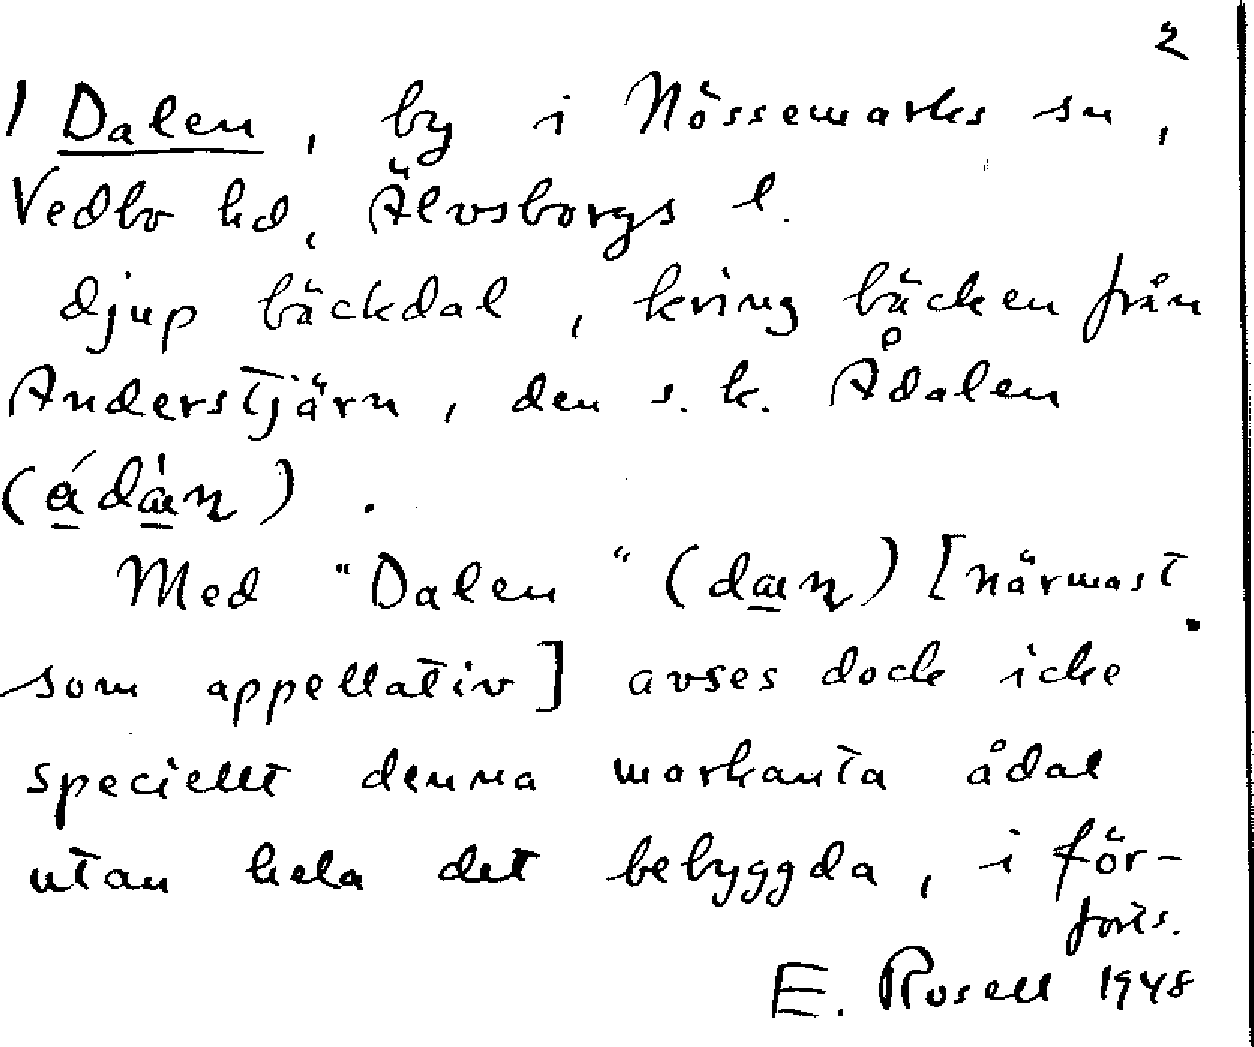 2
1 Dalen, by i Nössemarks sn,
Vedbo hd, Älvsborgs l.
djup bäckdal, kring bäcken från
Anderstjärn, den s. k. Ådalen
(
Med "Dalen" (dæɳ) [närmast
som appellativ] avses dock icke
speciellt denna markanta ådal
utan hela det bebyggda, i för-
forts.
E. Rosell 1948